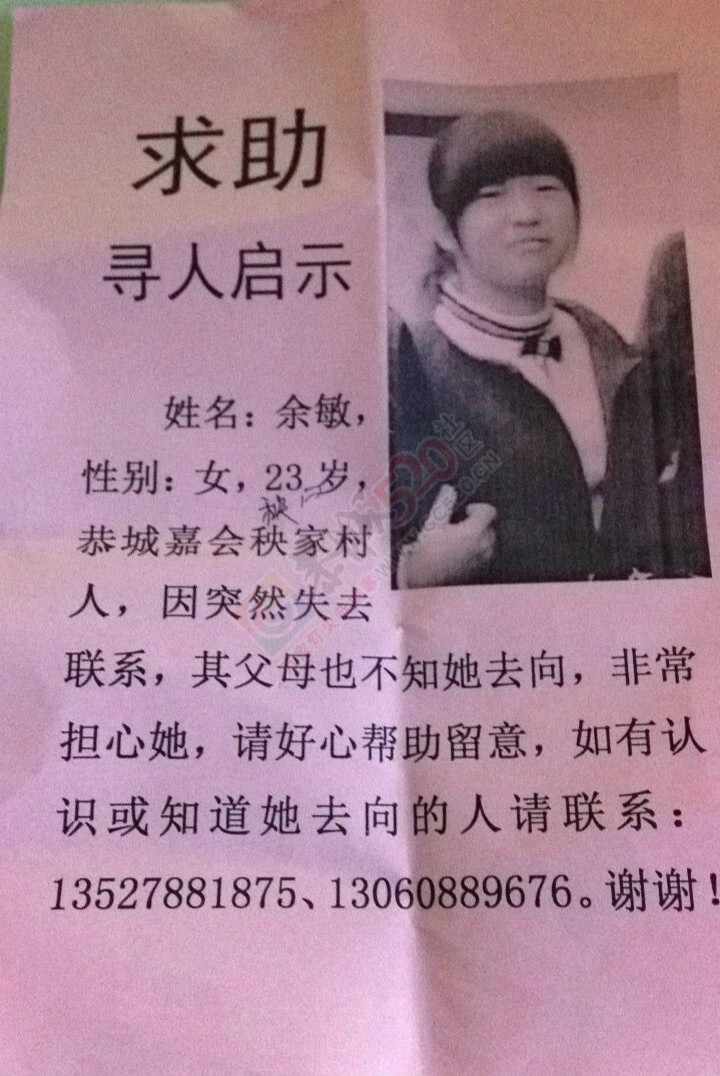 求助
寻人启示
姓名：余敏，
性别：女，23岁，
恭城嘉会秧家村
人，因突然失去
联系，其父母也不知她去向，非常
担心她，请好心帮助留意，如有认
识或知道她去向的人请联系：
13527881875、13060889676。谢谢！
520社区